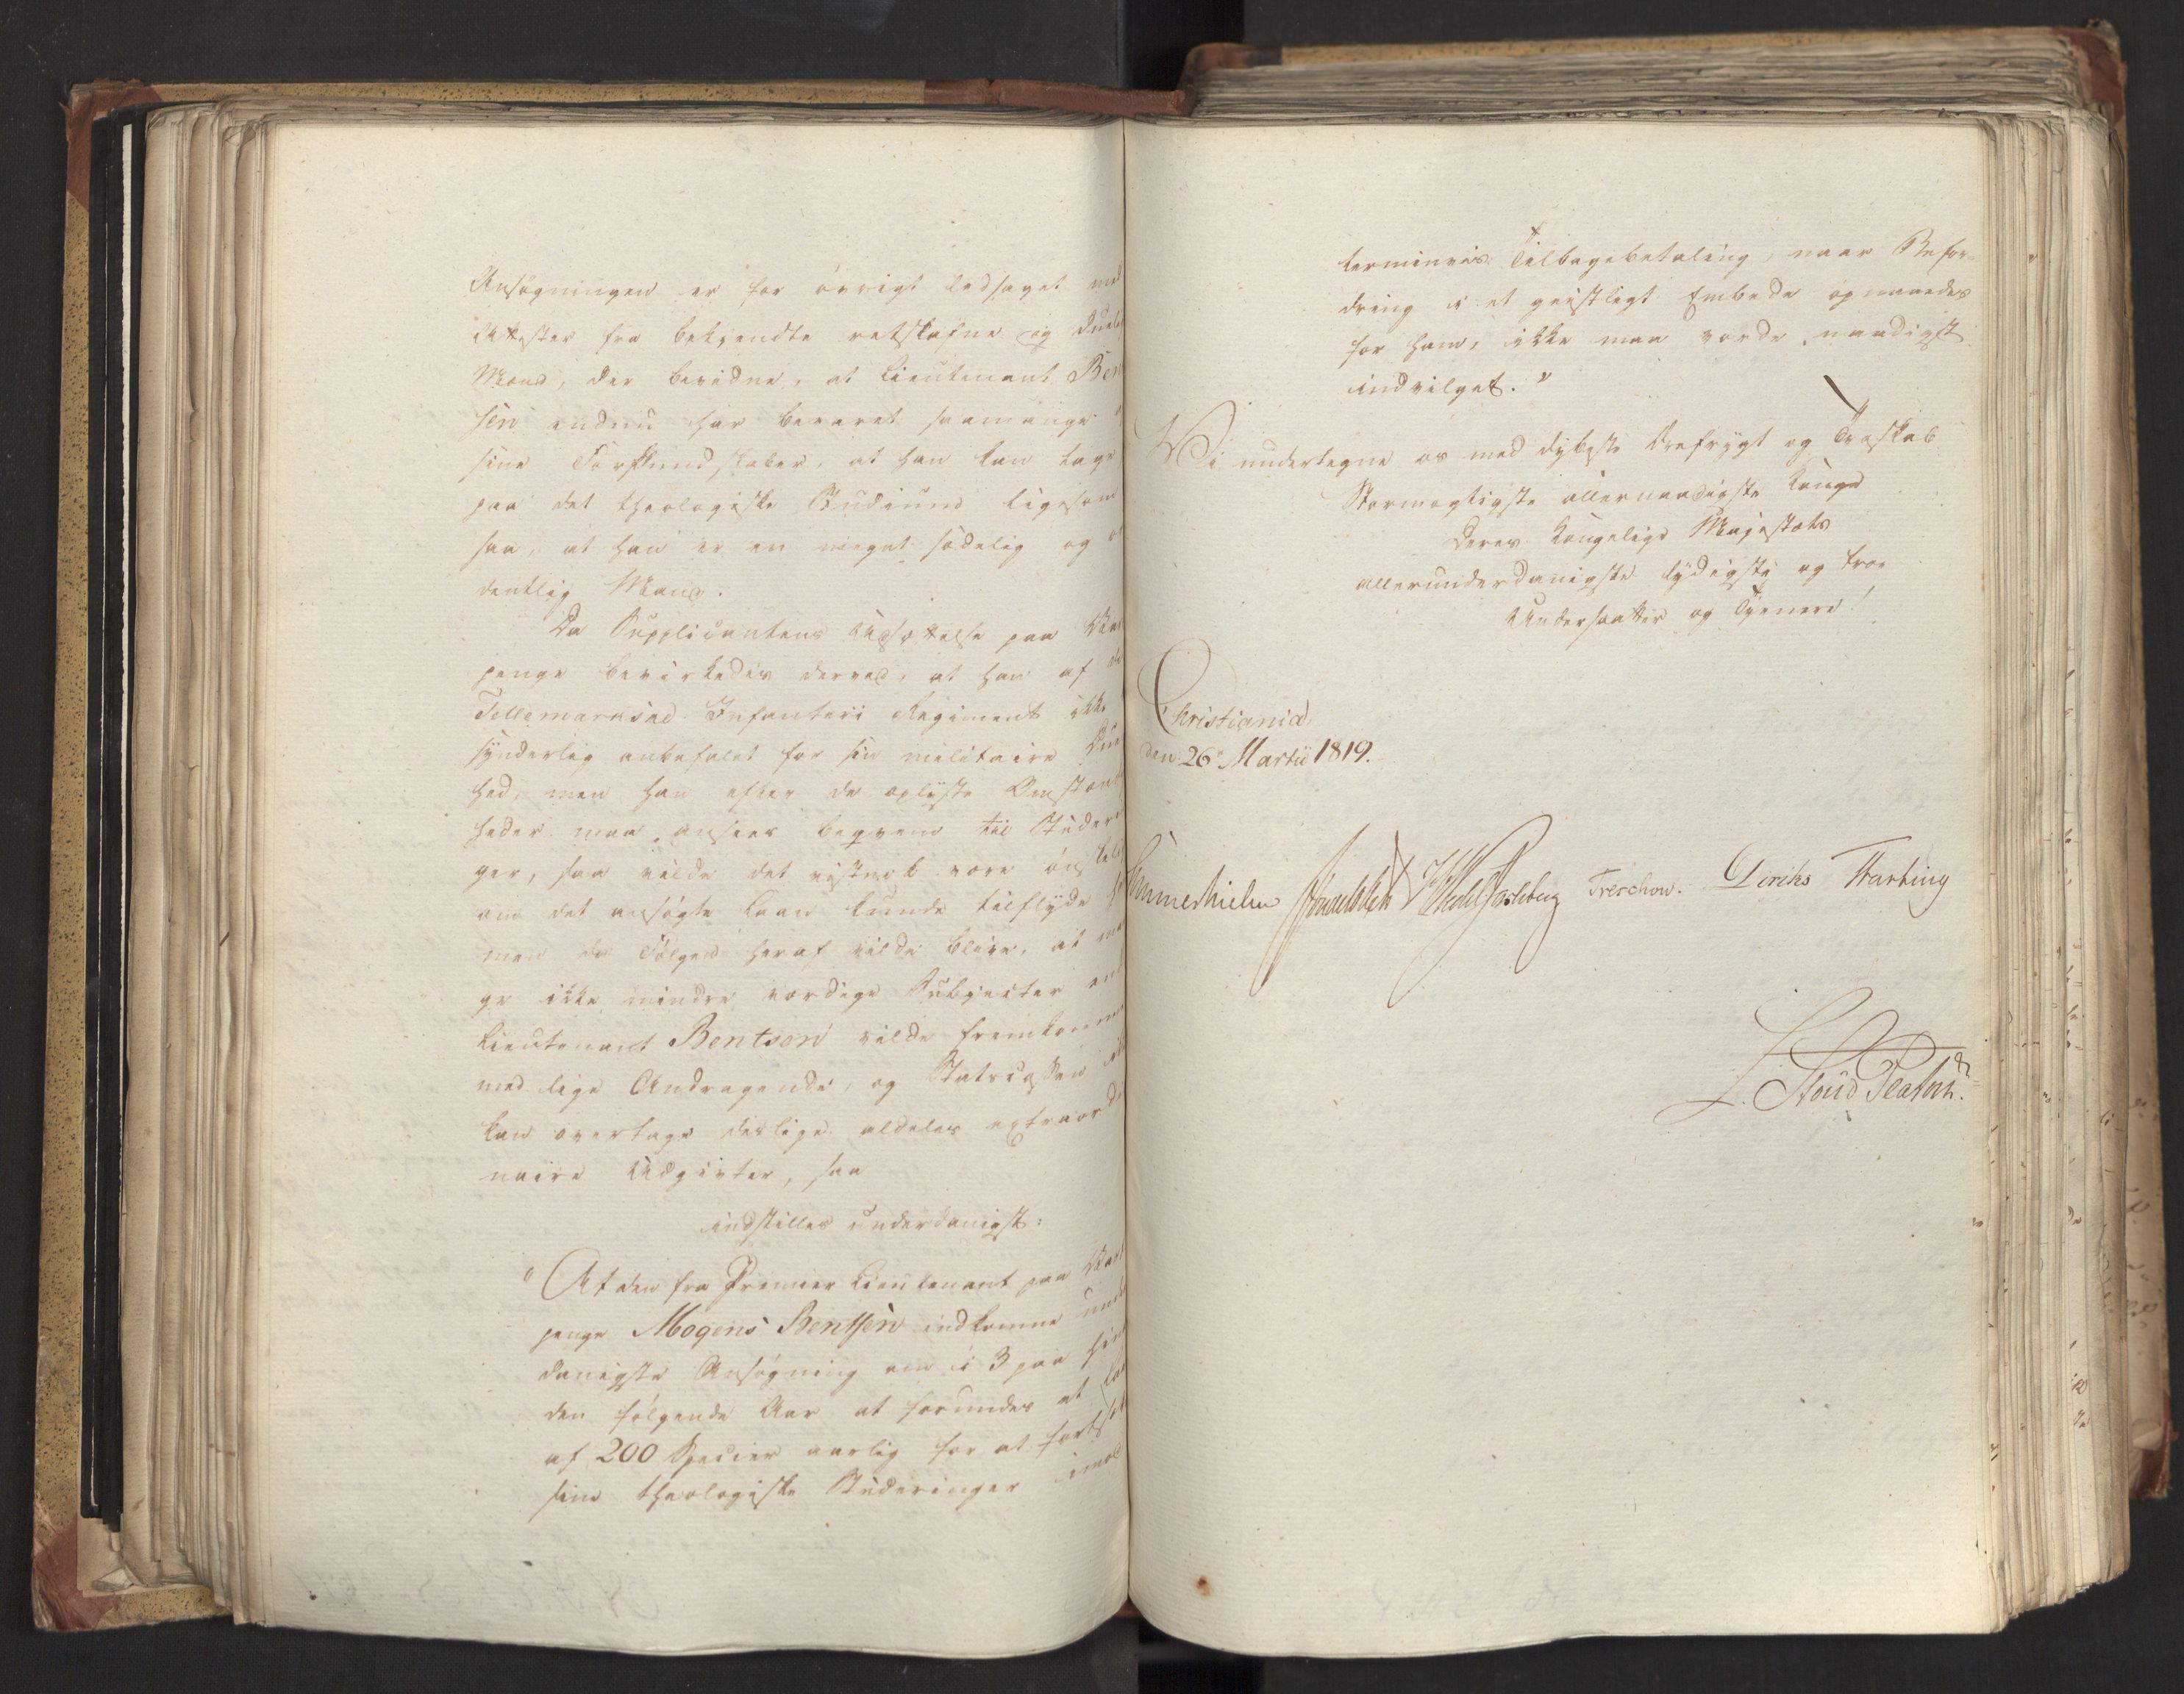 Ansøgningen er for övrigt ledsaget med
Attester fra bekjendte retskafne og duelig
Mænd, der bevidne, at Lieutenant Ben
sen endnu har bevaret saamange
sine Forkundskaber, at han kan tage
paa det theologiske Studium ligesom
saa, at han er en meget sædelig og or
dentlig Mand.
Da Supplicantens Ansættelse paa Vart
penge bevirkedes derved, at han af det
Tellemarkske Infanteri Regiment ikke
synderlig anbefalet for sin militaire Due
hed, men han efter de oplyste Omstændig
heder maa ansees beqvem til Studerin
ger, saa vilde det vistnok være önskelig
om det ansögte Laan kunde tilflyde ham
men da Fölgen heraf vilde blive, at man
ge ikke mindre værdige Subjecter end
Lieutenant Bentsen vilde fremkomme
med lige Andragende, og Statscassen ikke
kan overtage deslige aldeles extraordi
naire Udgivter, saa
indstilles underdanigst:
"At den fra Premier Lieutenant paa Vart
penge Mogens Bentsen indkomne under
danigste Ansøgning om i 3 paa hin
den fölgende Aar at forundes et Laan
af 200 Specier aarlig for at fortsætte
sine theologiske Studeringer imod
terminviis Tilbagebetaling, naar Befor-
dring i et geistligt Embede opnaaedes
for ham, ikke maa vorde naadigst
indvilget."
Vi undertegne os med dybeste Ærefrygt og Troskab
Stormægtigste allernaadigste Konge
Deres Kongelige Majestæts
allerunderdanigste lydigste og troe
Undersaatter og Tjenere!
Christiania
den 26 Martii 1819.
Sommerhielm Diriks Treschow. Hartung
L. Stoud Platou.